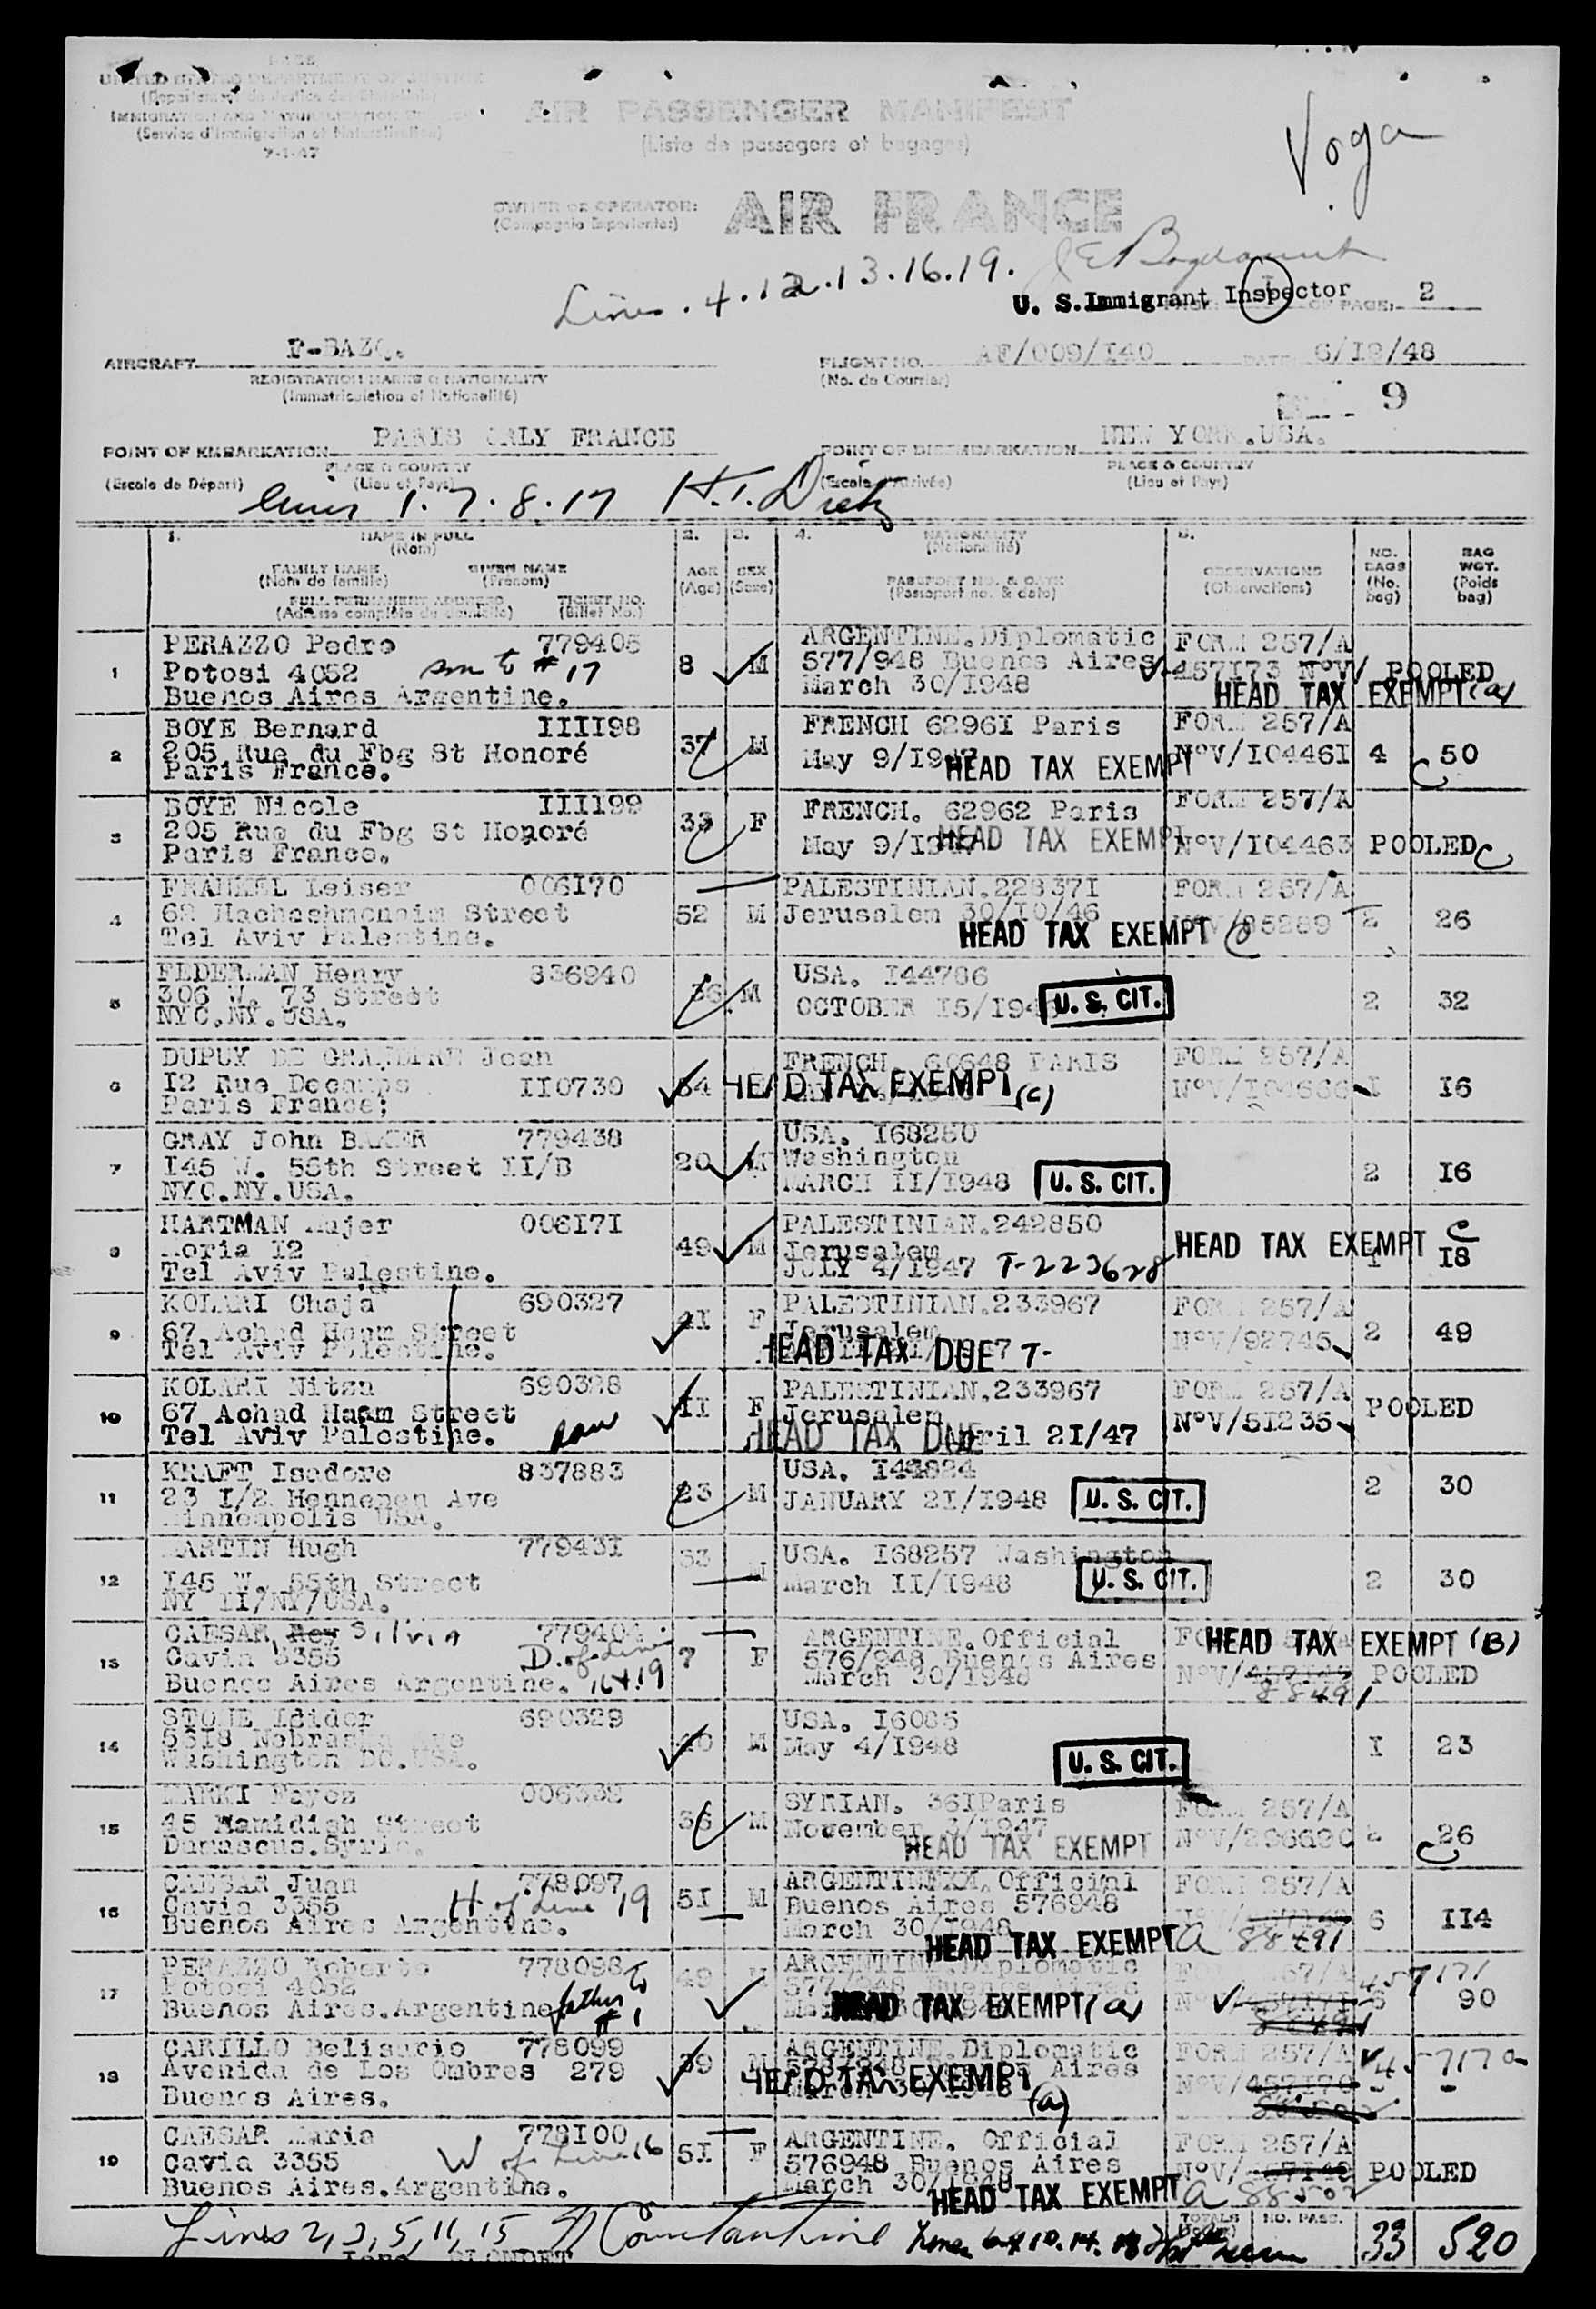 UNITED STATES DEPARTMENT OF JUSTICE
(Département de Justice des
IMMIGRATION AND NATURALIZATION
(Service d'Immigration et Naturalisation)
7-1-47
AIR PASSENGER MANIFEST
(Liste de passagers et bagages)
Voga
OWNER OR OPERATOR:
(Compagnie Exploitante:)
AIR FRANCE
Lines. 4.12.13.16.19.
U. S. Immigrant Inspector
OF PAGE. 2
AIRCRAFT F-BAZQ.
REGISTRATION MARKS & NATIONALITY
(Immatriculation et Nationalité)
FLIGHT NO. AF/009/I40 DATE 6/19/48
(No. de Courrier)
9
POINT OF EMBARKATION PARIS ORLY FRANCE
PLACE & COUNTRY
(Escale de Départ) (Lieu et Pays)
POINT OF DISEMBARKATION NEW YORK.USA.
PLACE & COUNTRY
(Escale d'Arrivée) (Lieu et Pays)
Lines 1.7.8.17 H.T. Dietz
1. NAME IN FULL (Nom)
FAMILY NAME (Nom de famille) GIVEN NAME (Prénom)
FULL PERMANENT ADDRESS (Adresse complète du domicile) TICKET NO. (Billet No.)
2. AGE (Age)
3. SEX (Sexe)
4. NATIONALITY (Nationalité)
PASSPORT NO. & DATE (Passeport no. & date)
5. OBSERVATIONS (Observations)
NO. BAGS (No. bag)
BAG WGT. (Poids bag)
1 PERAZZO Pedro 779405 8 M ARGENTINE.Diplomatic FORM 257/A
Potosi 4052 son to # 17 577/948 Buenos Aires 457I73 N°V/ POOLED
Buenos Aires Argentine. March 30/I948 HEAD TAX EXEMPT (a)
2 BOYE Bernard IIII98 37 M FRENCH 6296I Paris FORM 257/A
205 Rue du Fbg St Honoré May 9/I947 HEAD TAX EXEMPT N°V/I0446I 4 C 50
Paris France.
3 BOYE Nicole IIII99 33 F FRENCH. 62962 Paris FORM 257/A
205 Rue du Fbg St Honoré May 9/I947 HEAD TAX EXEMPT N°V/I04463 POOLED C
Paris France.
4 FRANKEL Leiser 006I70 52 M PALESTINIAN.22837I FORM 257/A
62 Hachashmonaim Street Jerusalem 30/I0/46 N°V/85289 2 26
Tel Aviv Palestine. HEAD TAX EXEMPT C
5 FEDERMAN Henry 836940 36 M USA. I44786
306 W. 73 Street OCTOBER I5/I94 U. S. CIT. 2 32
NYC.NY.USA.
6 DUPUY DE GRANDPRE Jean FRENCH. 60648 PARIS FORM 257/A
I2 Rue Decamps II0730 HEAD TAX EXEMPT (c) I I6
Paris France;
7 GRAY John BAKER 779438 20 M USA. I68250
I45 W. 55th Street II/B Washington 2 I6
NYC.NY.USA. MARCH II/I948 U. S. CIT.
8 HARTMAN Majer 006I7I 49 M PALESTINIAN.242850
Moria I2 Jerusalem HEAD TAX EXEMPT C I I8
Tel Aviv Palestine. JULY 4/I947 T-223628
9 KOLARI Chaja 690327 4I F PALESTINIAN.233967 FORM 257/A
67 Achad Haam Street Jerusalem N°V/92745 2 49
Tel Aviv Palestine. HEAD TAX DUE T-
10 KOLARI Nitza 690328 II F PALESTINIAN.233967 FORM 257/A
67 Achad Haam Street Jerusalem N°V/5I235 POOLED
Tel Aviv Palestine. HEAD TAX DUE April 2I/47
11 KRAFT Isadore 837883 23 M USA. I44824
23 I/2 Hennepen Ave JANUARY 2I/I948 U. S. CIT. 2 30
Minneapolis USA.
12 MARTIN Hugh 77943I 33 M USA. I68257 Washington
I45 W. 55th Street March II/I948 U. S. CIT. 2 30
NY II/NY/USA.
13 CAESAR Rey Silvia 779404 7 F ARGENTINE.Official HEAD TAX EXEMPT (B)
Cavia 3355 D. of Line 576/948 Buenos Aires
Buenos Aires Argentine. 16+19 March 30/I948 N°V/ 88491 POOLED
14 STONE Isidor 690329 40 M USA. I6085
56I8 Nebraska Ave May 4/I948 I 23
Washington DC.USA. U. S. CIT.
15 MARKI Fayez 36 M SYRIAN. 36IParis FORM 257/A
45 Hamidieh Street November 3/I947 2 C 26
Damascus.Syria. HEAD TAX EXEMPT
16 CAESAR Juan 778097 5I M ARGENTINEXX. Official FORM 257/A
Cavia 3355 H of Line 19 Buenos Aires 576948 6 II4
Buenos Aires Argentine. March 30/I948 HEAD TAX EXEMPT a 88491
17 PERAZZO Roberto 778098 49 M ARGENTINE.Diplomatic FORM 257/A 457171
Potosi 4052 577/948 Buenos Aires 6 90
Buenos Aires.Argentine father to # 1 HEAD TAX EXEMPT (a)
18 CARILLO Belisario 778099 39 M ARGENTINE.Diplomatic FORM 257/A 457170
Avenida de Los Ombres 279 578/948 Buenos Aires N°V/457I70 - -
Buenos Aires. HEAD TAX EXEMPT (a)
19 CAESAR Maria 778I00 5I F ARGENTINE. Official FORM 257/A
Cavia 3355 W of Line 16 576948 Buenos Aires N°V/ POOLED
Buenos Aires.Argentine. March 30/I948 HEAD TAX EXEMPT a
Lines 2, 3, 5, 11, 15 Constantine
TOTALS NO. PASS. 33 520